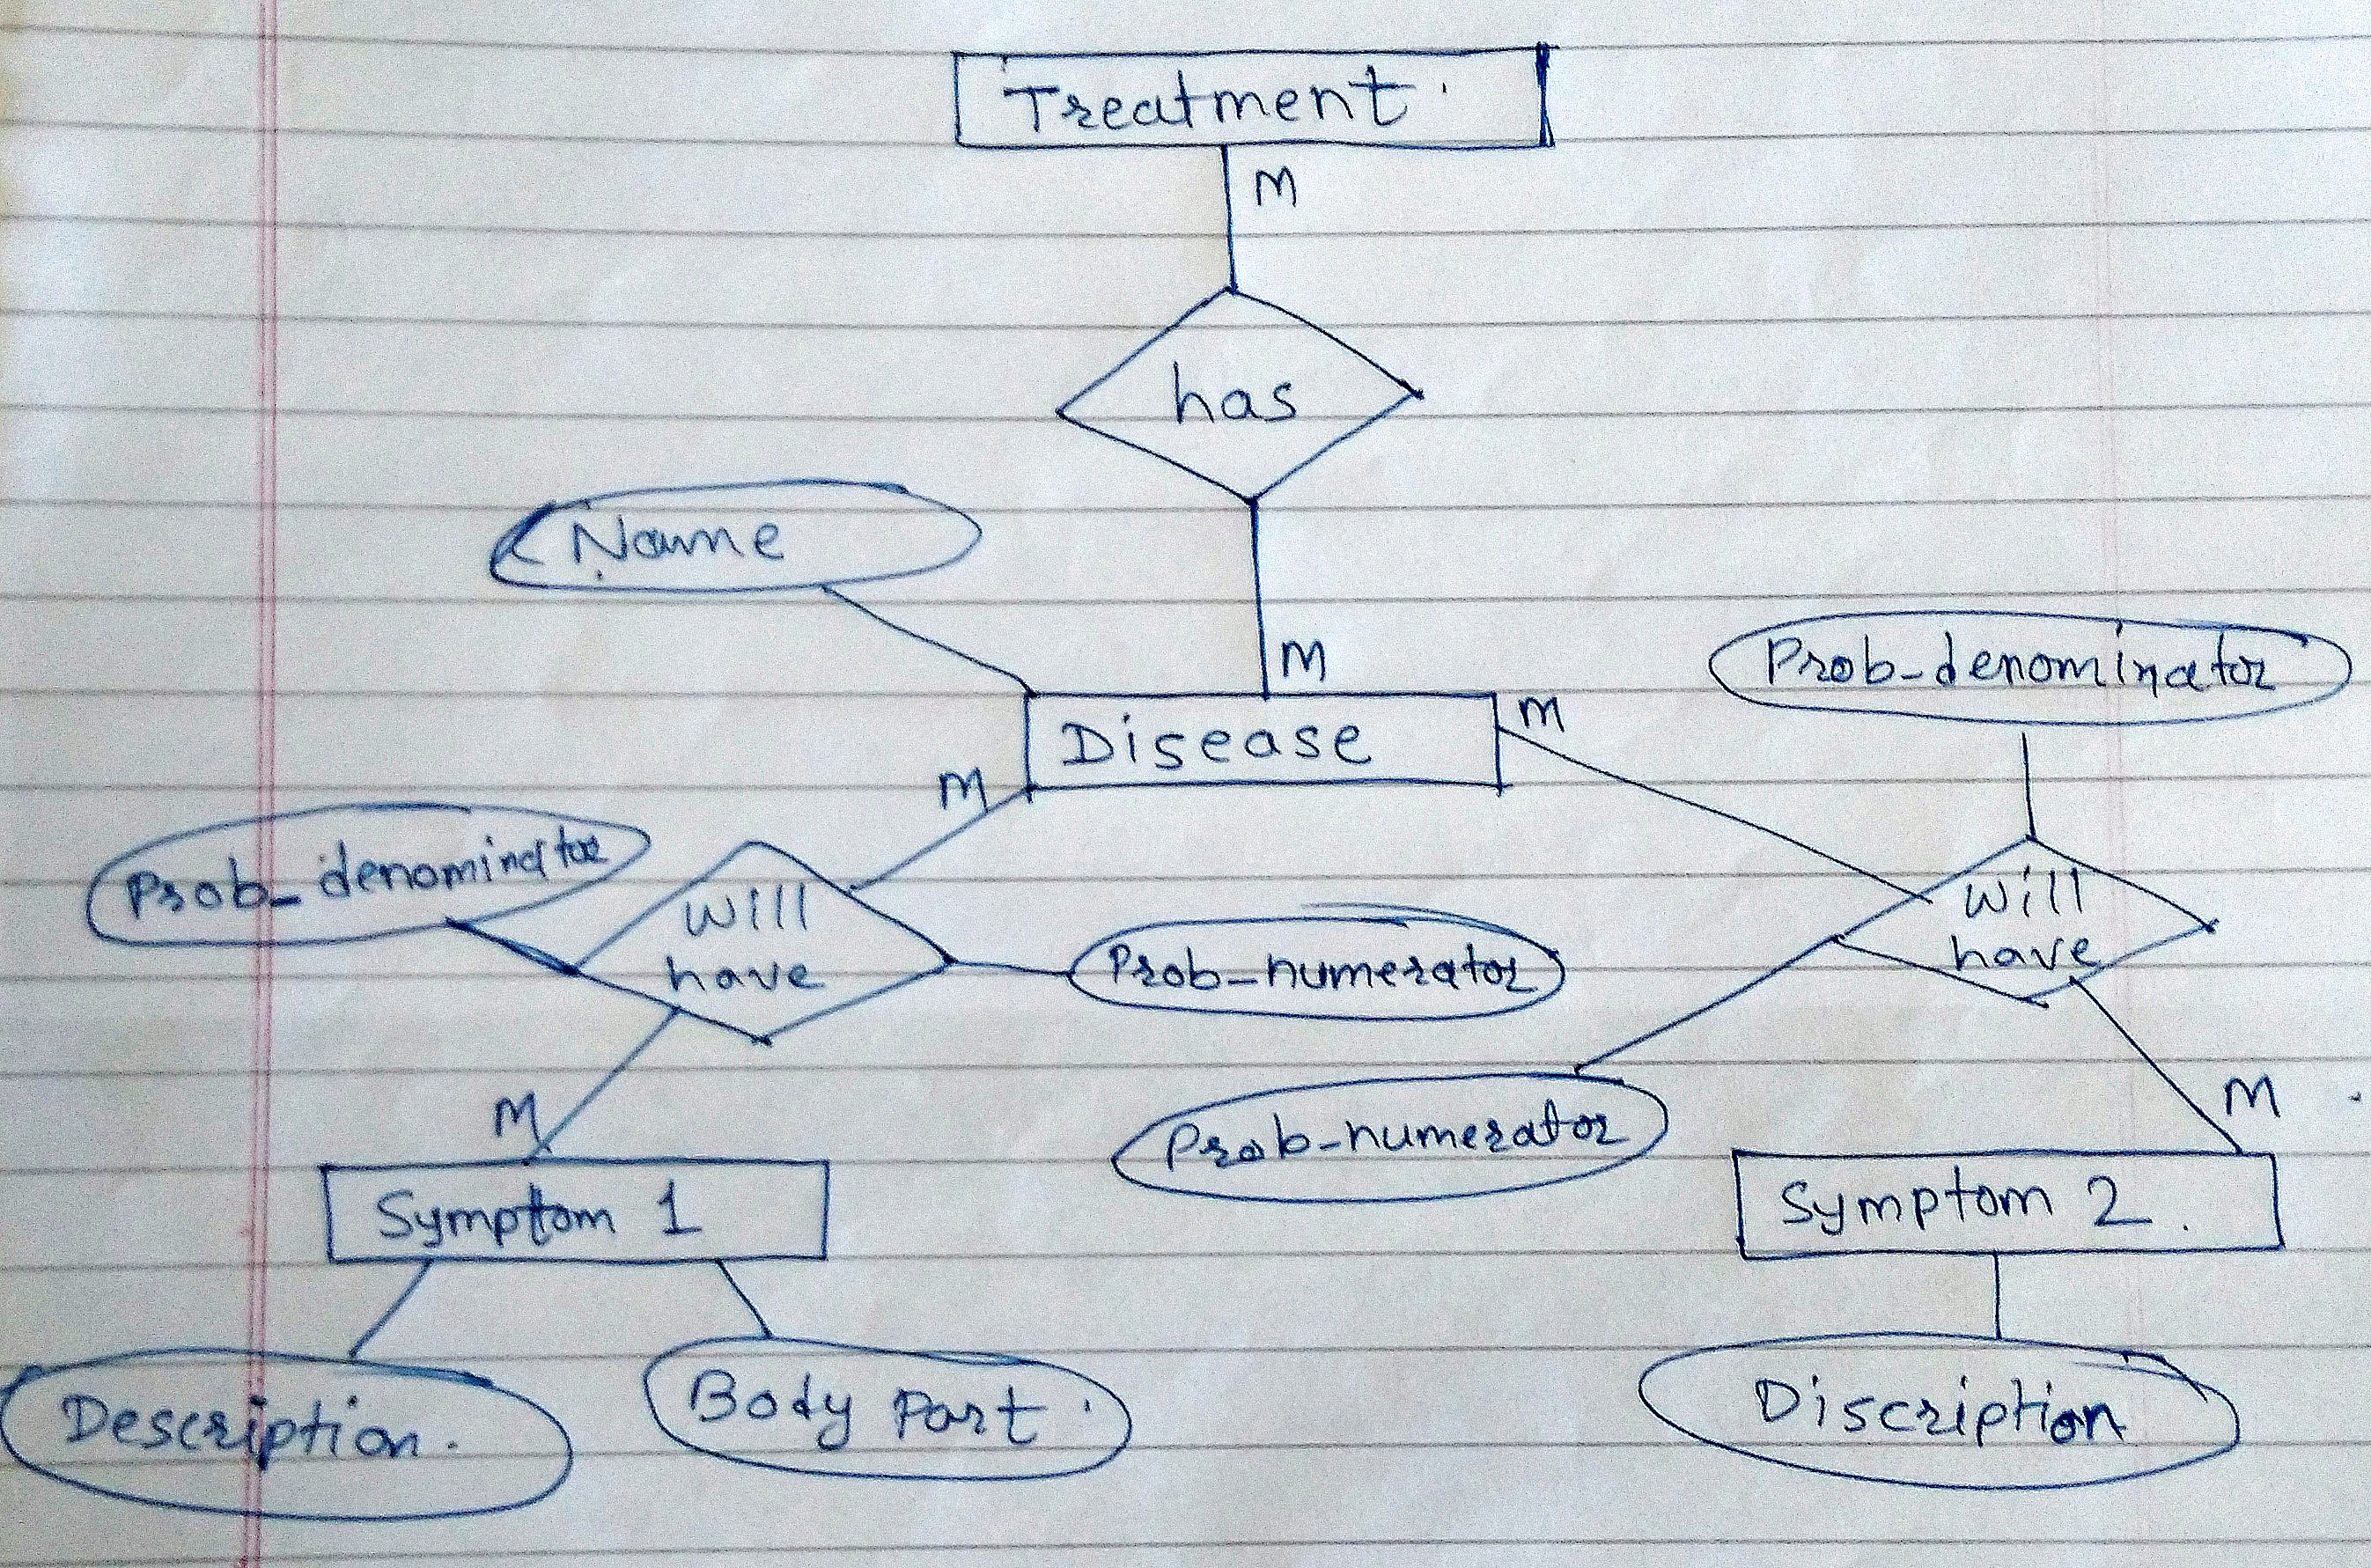 Treatment.
M
has
Name
M
Prob-denominator
Disease
M
M
Prob_denominator
Will
have
Prob-numerator
Will
have
M
Prob-numerator
M
Symptom 1
Symptom 2.
Description.
Body Part.
Discription